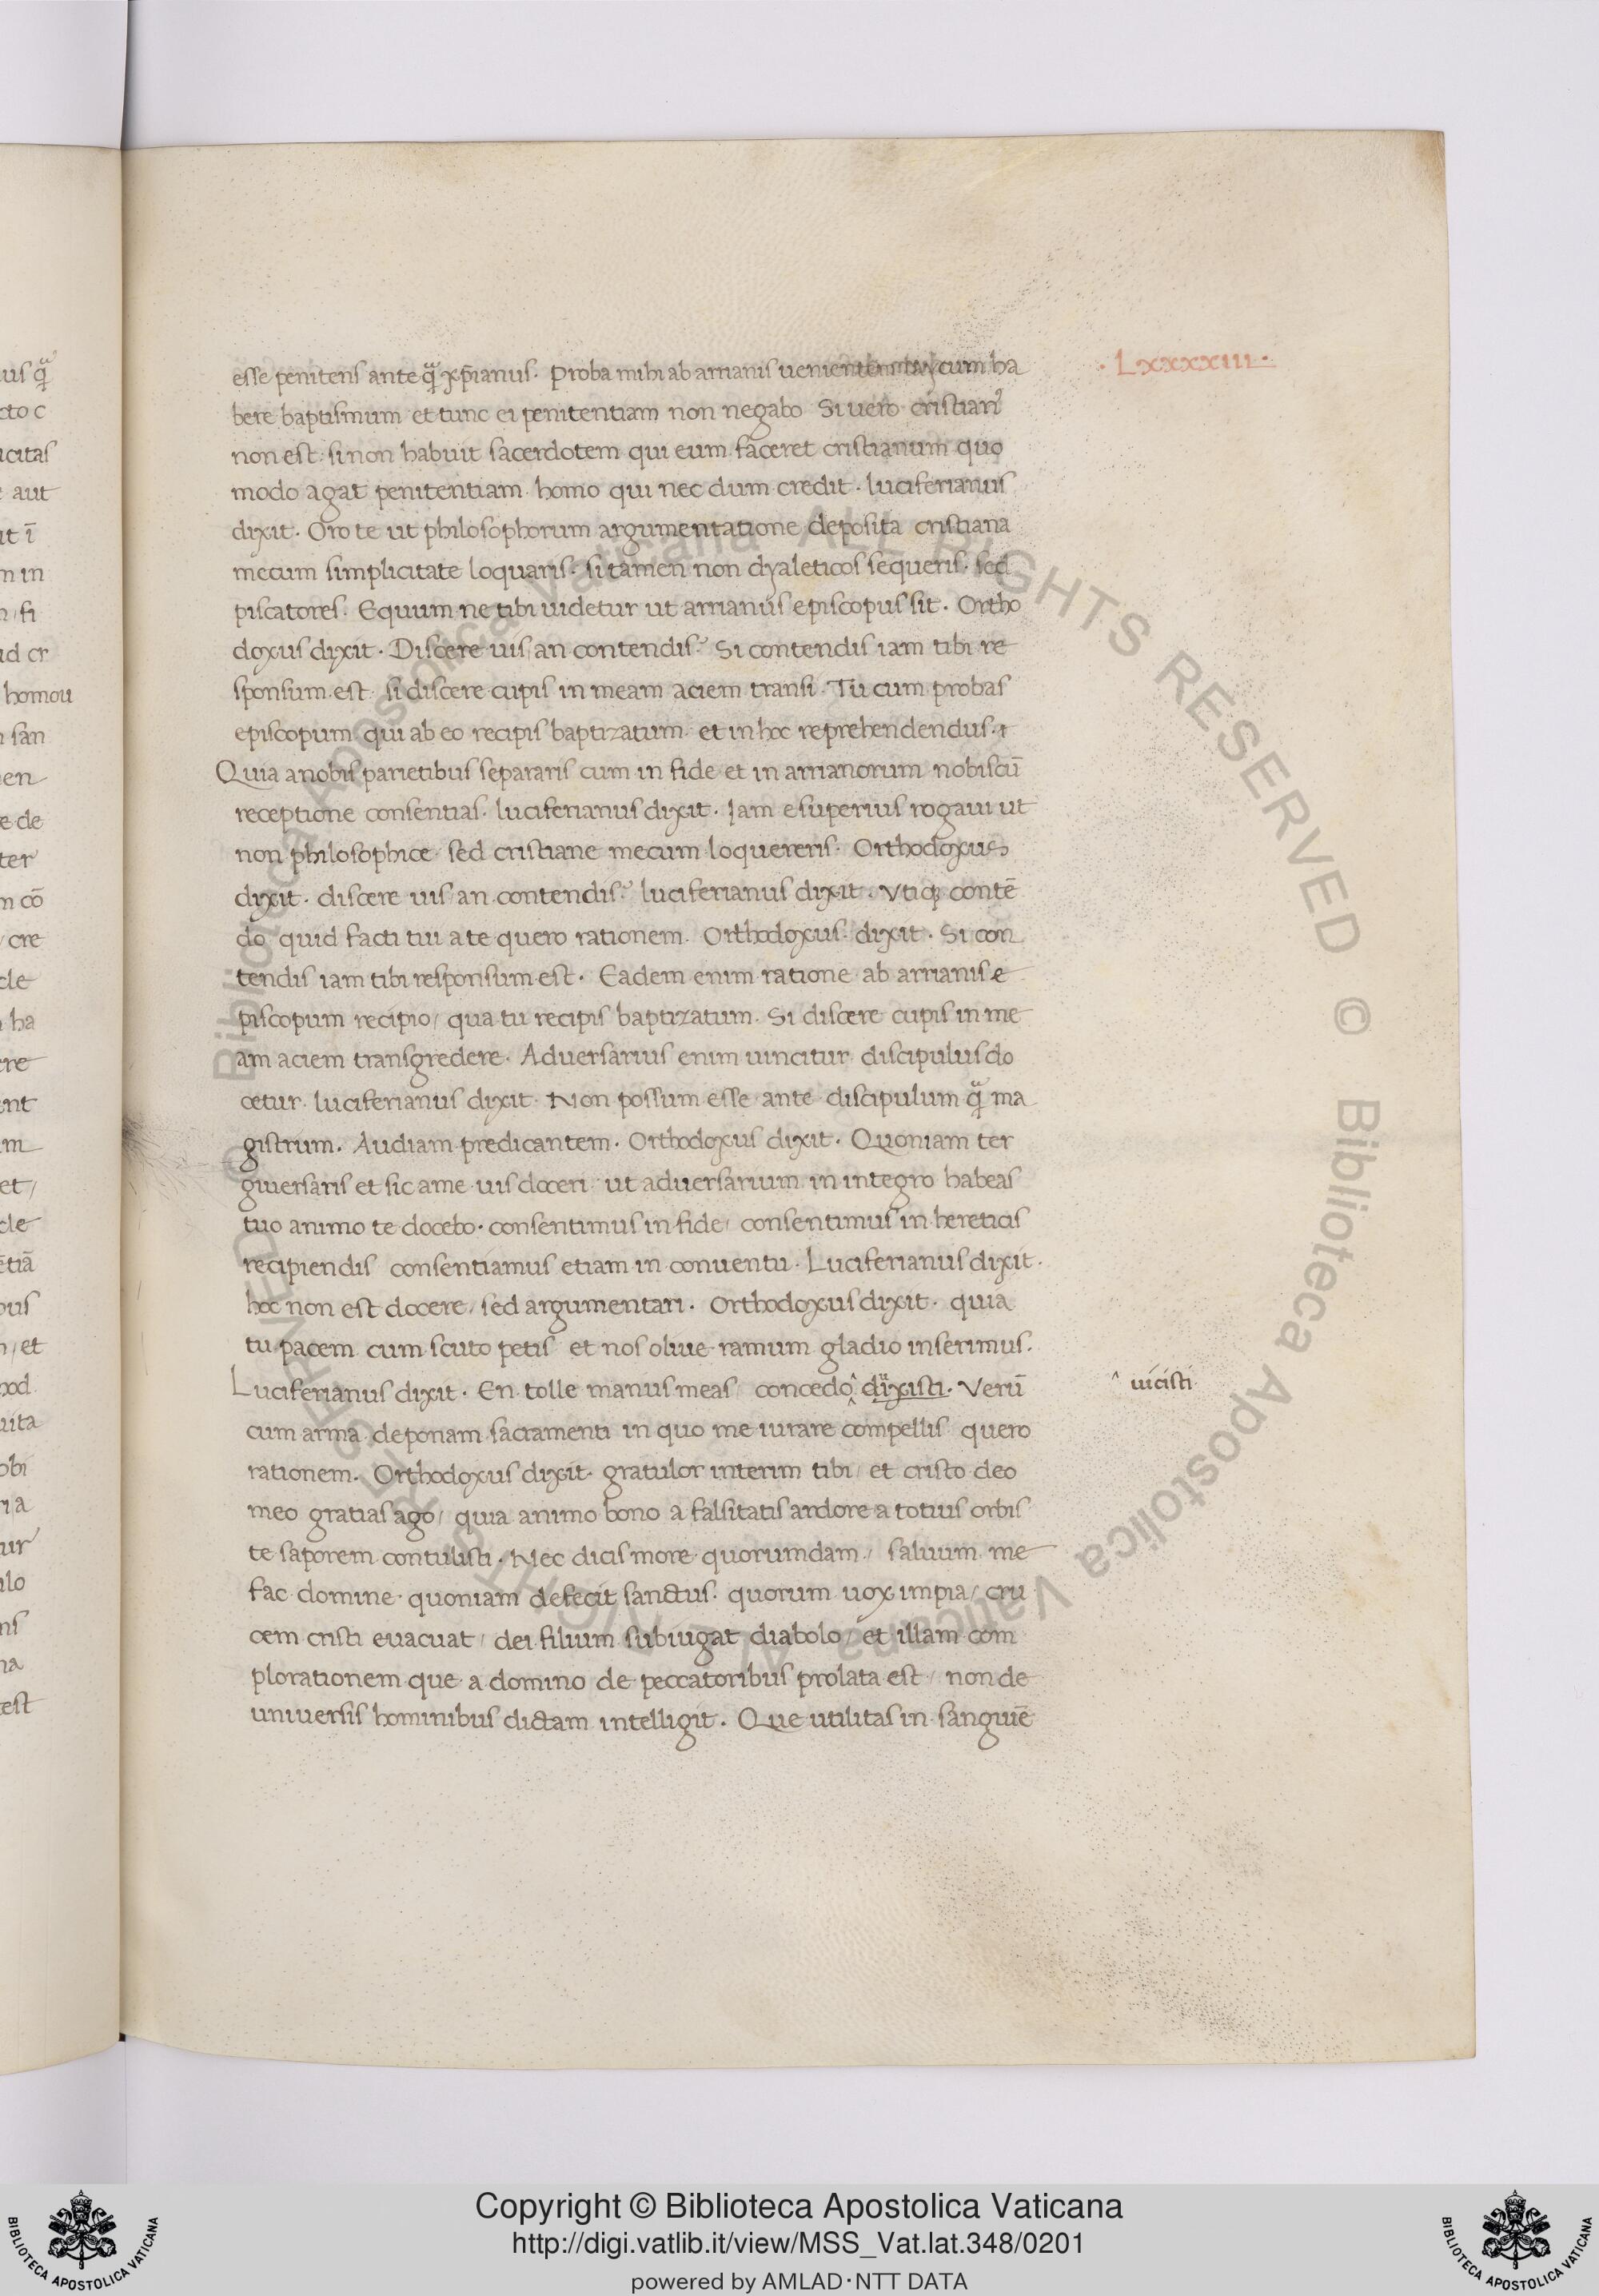 · Lxxxxiii ·
esse penitens ante q̃ xp̃ianus. Proba mihi ab arrianis cum ha
bere baptismum et tunc ei penitentiam non negabo Si uero cristianꝰ
non est: si non habuit sacerdotem qui eum faceret cristianum quo
modo agat penitentiam homo qui nec dum credit. luciferianus
dixit. Oro te ut philosophorum argumentatione deposita cristiana
mecum simplicitate loquaris. si tamen non dyaleticos sequeris. sed
piscatores. Equum ne tibi uidetur ut arrianus episcopus sit. Ortho
doxus dixit. Discere uis an contendis? Si contendis iam tibi re
sponsum est. si discere cupis in meam aciem transi. Tu cum probas
episcopum qui ab eo recipis baptizatum. et in hoc reprehendendus.
Quia anobis parietibus separaris cum in fide et in arrianorum nobiscū
receptione consentias. luciferianus dixit. Iam e superius rogaui ut
non philosophice sed cristiane mecum loquereris. Orthodoxus
dixit. discere uis an contendis? luciferianus dixit. Vtiq; contē
do quid facti tui a te quero rationem. Orthodoxus dixit. Si con
tendis iam tibi responsum est. Eadem enim ratione ab arrianis e
piscopum recipio/ qua tu recipis baptizatum. Si discere cupis in me
am aciem transgredere. Aduersarius enim uincitur discipulus do
cetur. luciferianus dixit. Non possum esse ante discipulum q̃ ma
gistrum. Audiam predicantem. Orthodoxus dixit. Quoniam ter
giuersaris et sic ame uis doceri ut aduersarium in integro habeas
tuo animo te docebo. consentimus in fide/ consentimus in hereticis
recipiendis consentiamus etiam in conuentu. Luciferianus dixit.
hoc non est docere/ sed argumentari. Orthodoxus dixit. quia
tu pacem cum scuto petis et nos oliue ramum gladio inserimus.
Luciferianus dixit. En tolle manus meas concedo^ dixisti. Verū
^ uicisti
cum arma deponam sacramenti in quo me iurare compellis quero
rationem. Orthodoxus dixit. gratulor interim tibi/ et cristo deo
meo gratias ago/ quia animo bono a falsitatis ardore a totius orbis
te saporem contulisti. Nec dicis more quorumdam/ saluum me
fac domine quoniam defecit sanctus. quorum uox impia/ cru
cem cristi euacuat/ dei filium subiugat diabolo/ et illam com
plorationem que a domino de peccatoribus prolata est/ non de
uniuersis hominibus dictam intelligit. Que utilitas in sanguīe
Copyright © Biblioteca Apostolica Vaticana
http://digi.vatlib.it/view/MSS_Vat.lat.348/0201
powered by AMLAD·NTT DATA